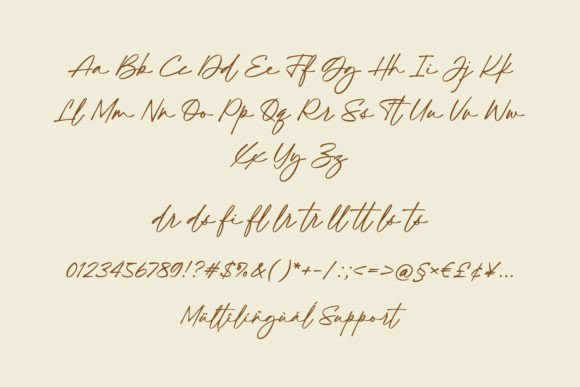 Aa Bb Cc Dd Ee Ff Gg Hh Ii Jj Kk
Ll Mm Nn Oo Pp Qq Rr Ss Tt Uu Vv Ww
Xx Yy Zz
dr ds fi fl lr tr ll tt ls ts
0123456789!?#$%&()*+-/:;<=>@§×€£¢¥...
Mültilingùál Support